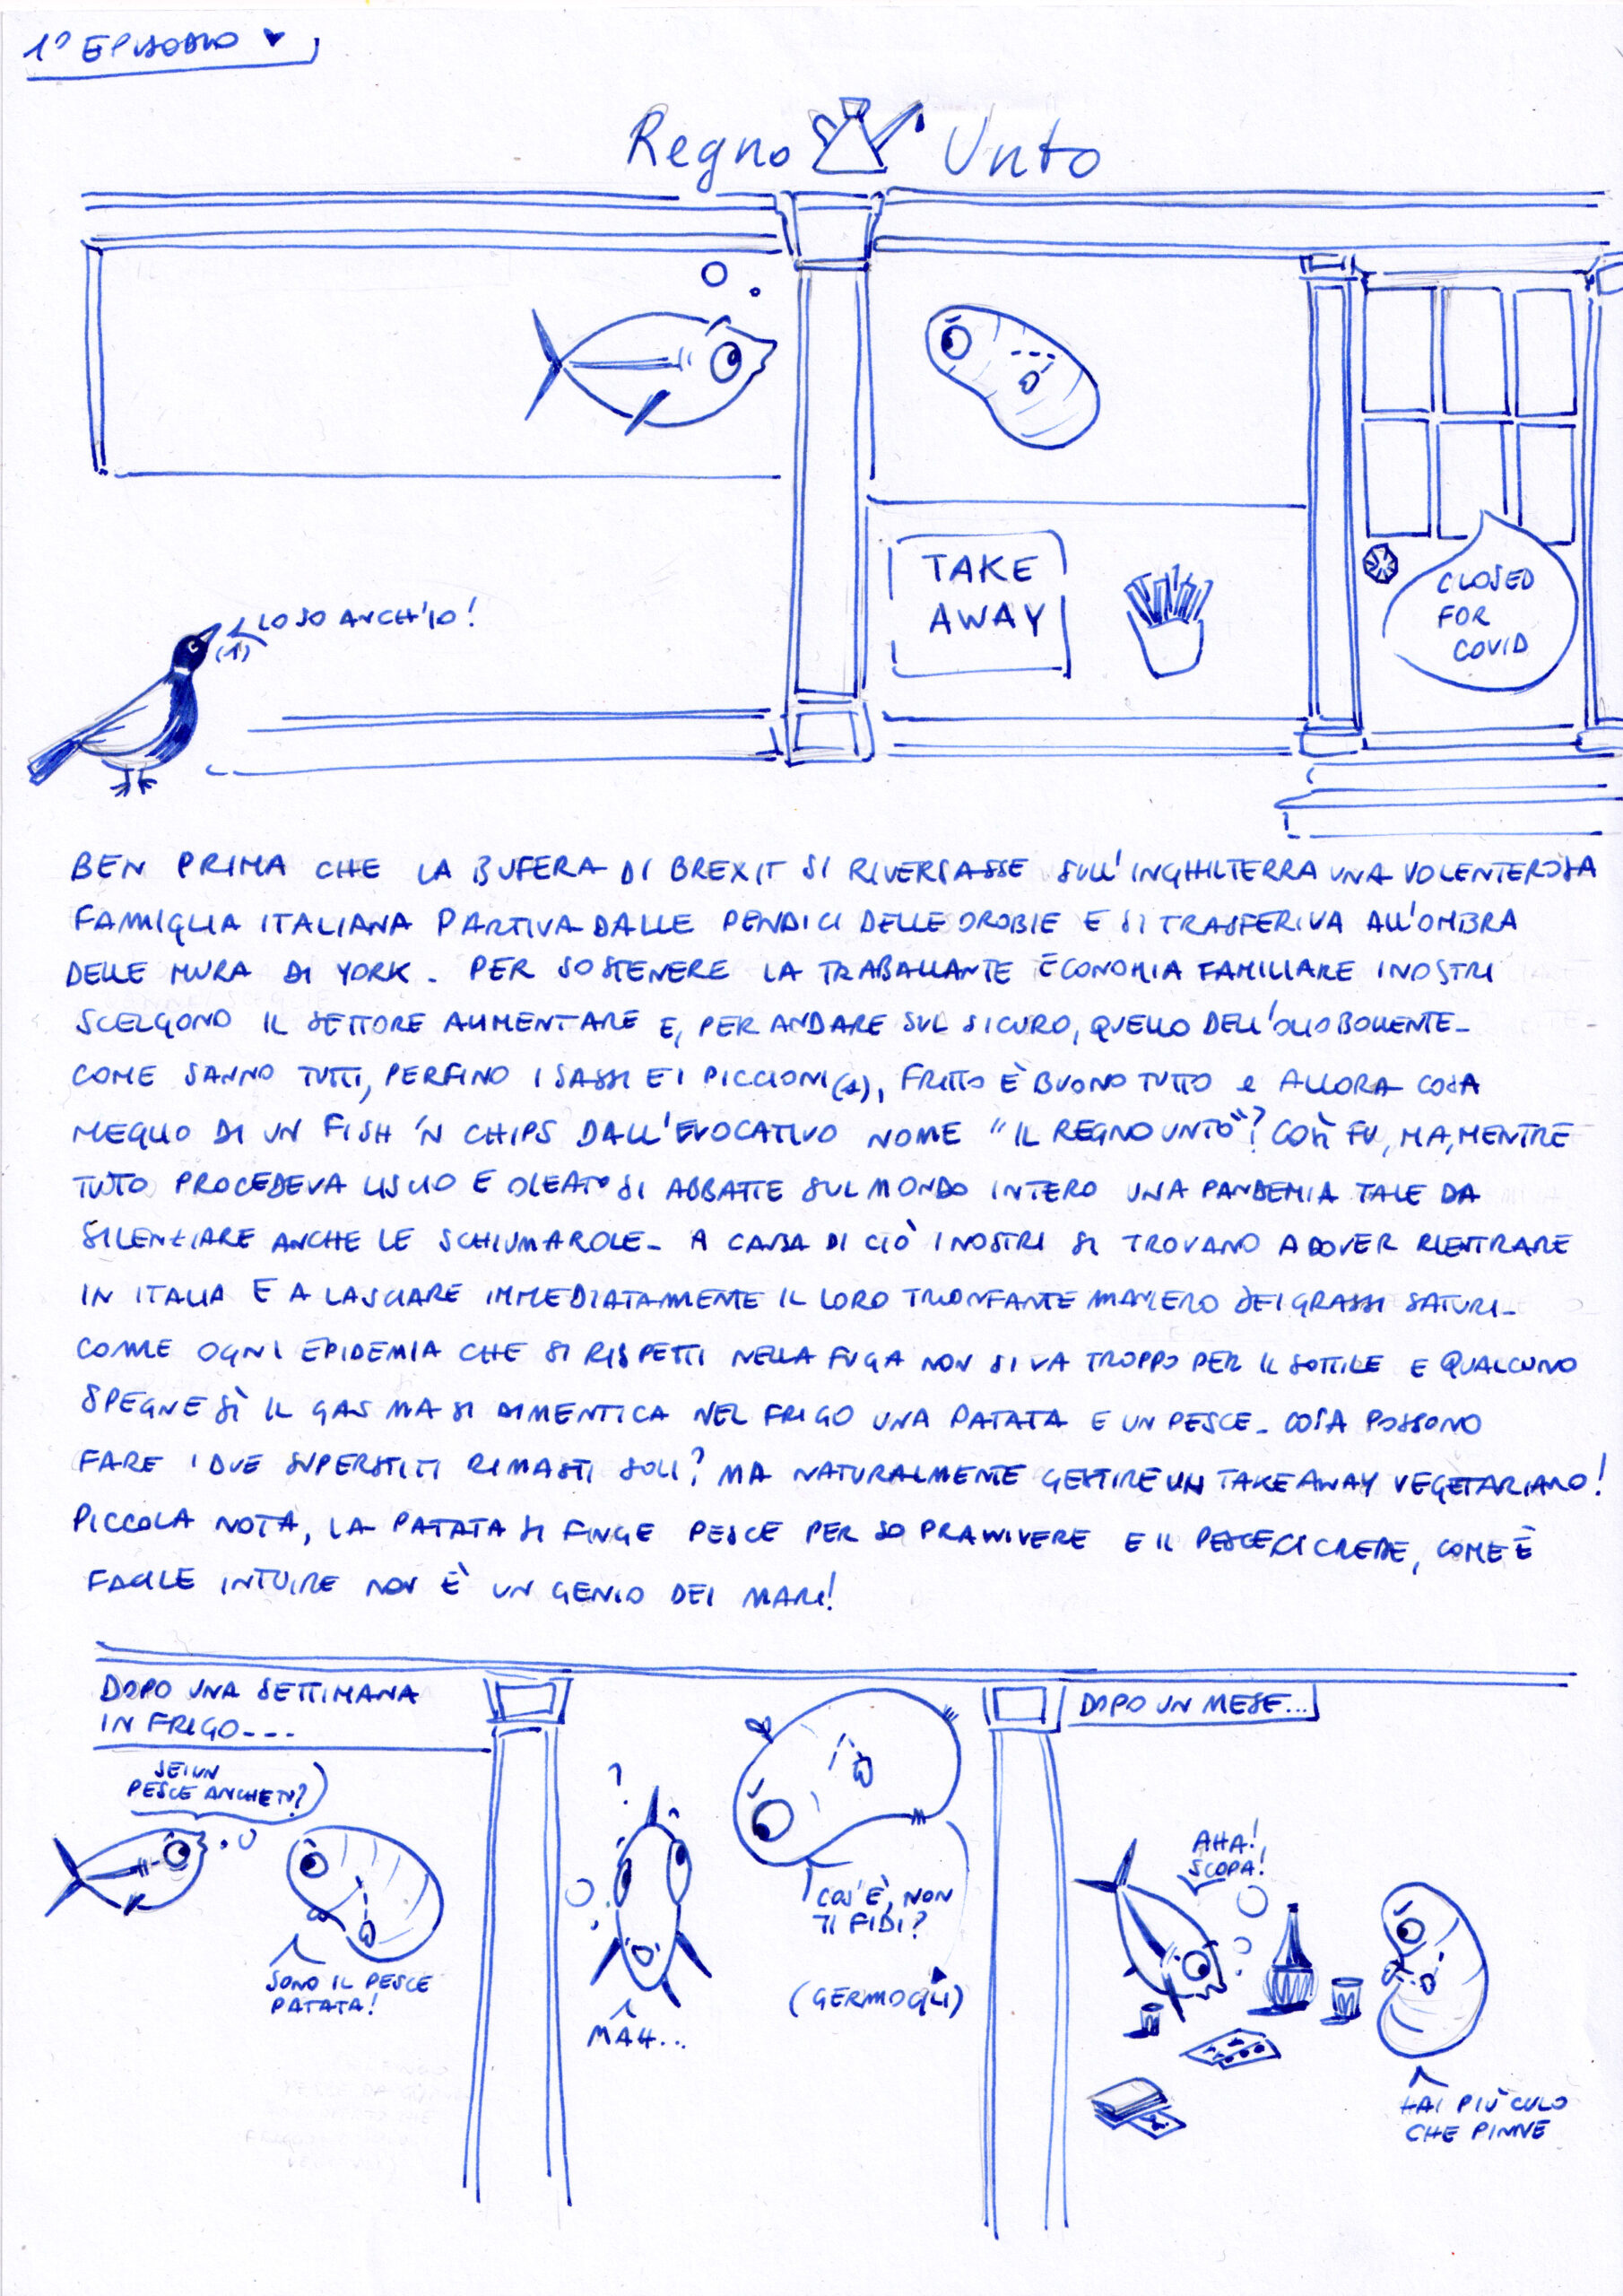 1º EPISODIO
Regno Unto
LO SO ANCH'IO!
(1)
TAKE
AWAY
CLOSED
FOR
COVID
BEN PRIMA CHE LA BUFERA DI BREXIT SI RIVERSASSE SULL'INGHILTERRA UNA VOLENTEROSA
FAMIGLIA ITALIANA PARTIVA DALLE PENDICI DELLE OROBIE E SI TRASFERIVA ALL'OMBRA
DELLE MURA DI YORK. PER SOSTENERE LA TRABALLANTE ECONOMIA FAMILIARE I NOSTRI
SCELGONO IL SETTORE ALIMENTARE E, PER ANDARE SUL SICURO, QUELLO DELL'OLIO BOLLENTE.
COME SANNO TUTTI, PERFINO I SASSI E I PICCIONI(1), FRITTO È BUONO TUTTO e ALLORA COSA
MEGLIO DI UN FISH 'N CHIPS DALL'EVOCATIVO NOME "IL REGNO UNTO"? COSÌ FU, MA, MENTRE
TUTTO PROCEDEVA LISCIO E OLEATO SI ABBATTE SUL MONDO INTERO UNA PANDEMIA TALE DA
SILENZIARE ANCHE LE SCHIUMAROLE. A CAUSA DI CIÒ I NOSTRI SI TROVANO A DOVER RIENTRARE
IN ITALIA E A LASCIARE IMMEDIATAMENTE IL LORO TRIONFANTE MANIERO DEI GRASSI SATURI.
COME OGNI EPIDEMIA CHE SI RISPETTI NELLA FUGA NON SI VA TROPPO PER IL SOTTILE E QUALCUNO
SPEGNE SÌ IL GAS MA SI DIMENTICA NEL FRIGO UNA PATATA E UN PESCE. COSA POSSONO
FARE I DUE SUPERSTITI RIMASTI SOLI? MA NATURALMENTE GESTIRE UN TAKE AWAY VEGETARIANO!
PICCOLA NOTA, LA PATATA SI FINGE PESCE PER SOPRAVVIVERE E IL PESCE CI CREDE, COME È
FACILE INTUIRE NON È UN GENIO DEI MARI!
DOPO UNA SETTIMANA
IN FRIGO...
SEI UN
PESCE ANCHE TU?
SONO IL PESCE
PATATA!
?
MAH...
COS'È, NON
TI FIDI?
(GERMOGLI)
DOPO UN MESE...
AHA!
SCOPA!
HAI PIÙ CULO
CHE PINNE